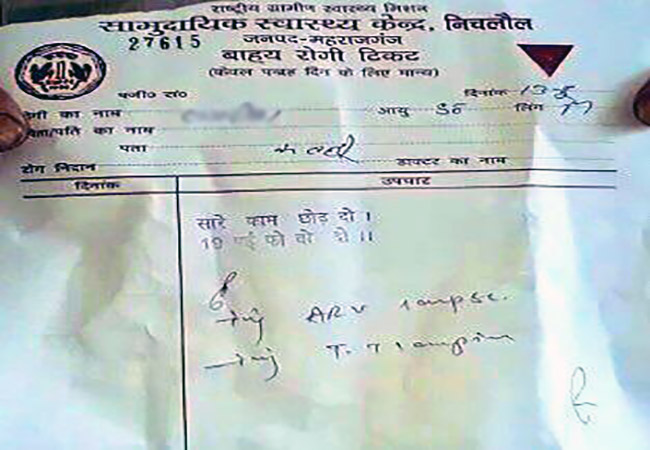 राष्ट्रीय ग्रामीण स्वास्थ्य मिशन
सामुदायिक स्वास्थ्य केन्द्र, निचलौल
27615 जनपद-महराजगंज
बाह्य रोगी टिकट
(केवल पन्द्रह दिन के लिए मान्य)
पंजी० सं० दिनांक
रोगी का नाम आयु 50 लिंग M
पिता/पति का नाम
पता
रोग निदान डाक्टर का नाम
दिनांक उपचार
सारे काम छोड़ दो।
19 मई को वो दो।।
ARV 1 amp sc.